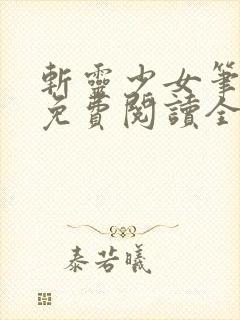 斬靈少女筆
免費閱讀全
泰若曦